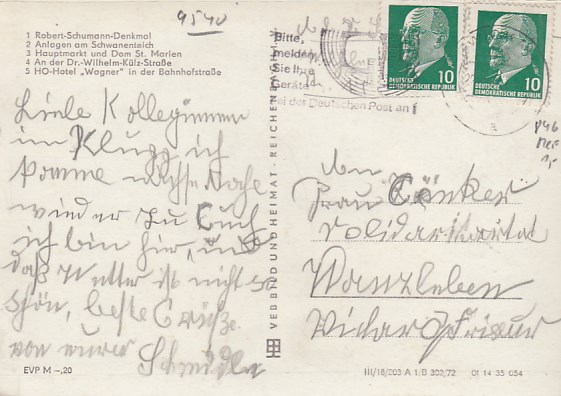 9540
1 Robert-Schumann-Denkmal
2 Anlagen am Schwanenteich
3 Hauptmarkt und Dom St. Marien
4 An der Dr.-Wilhelm-Külz-Straße
5 HO-Hotel „Wagner" in der Bahnhofstraße
Liebe Kolleginnen
ich
komme nächste Woche
wieder zu Euch
ich bin hier, und
daß Wetter ist nicht so
schön, beste Grüße
von eurer
EVP M -,20
VEB BILD UND HEIMAT · REICHENBACH
Bitte,
melden
Sie Ihre
Geräte
bei der Deutschen Post an!
DEUTSCHE
DEMOKRATISCHE REPUBLIK
10
DEUTSCHE
DEMOKRATISCHE REPUBLIK
10
Frau
Wanzleben
III/18/203 A 1/B 302/72 01 14 35 054